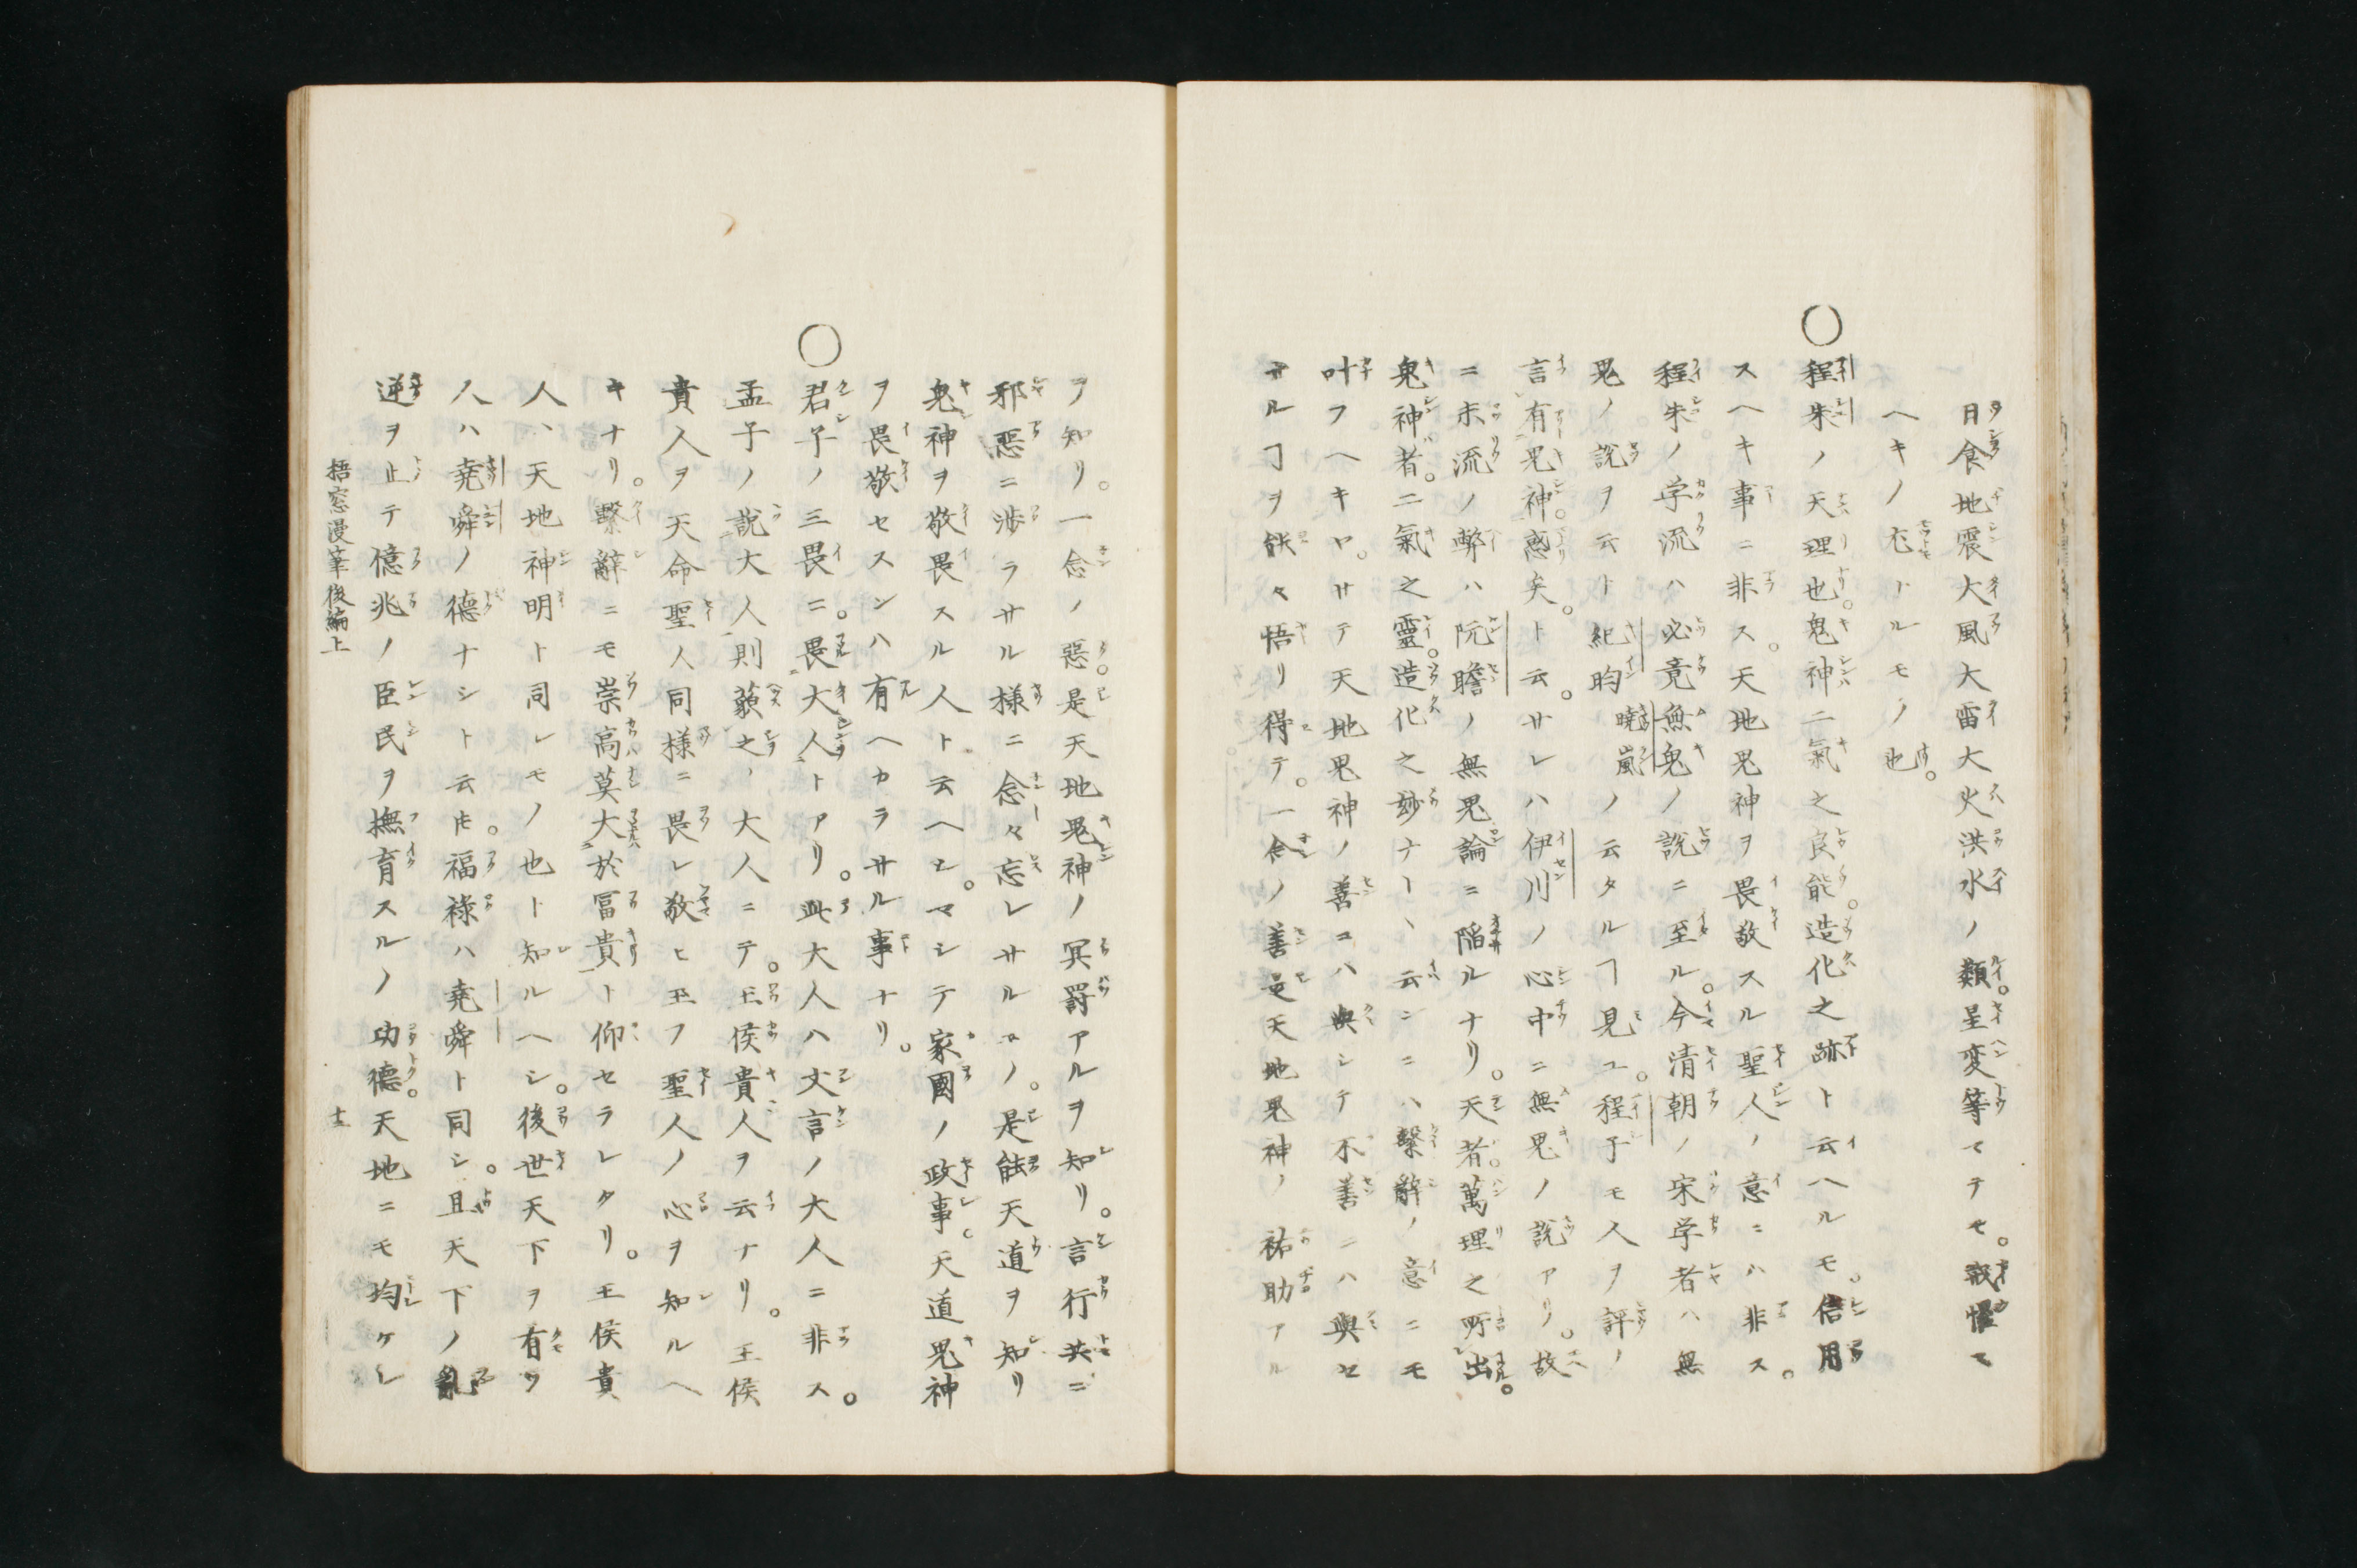 日食地震大風大雷大火洪水ノ類。星変等マテモ。戒懼ス
ヘキノ尤トルモノ也。
〇程朱ノ天理也鬼神二氣之良能。造化之跡ト云ヘルモ。信用
スヘキ事ニ非ス。天地鬼神ヲ畏敬スル聖人ノ意ニハ非ス。
程朱ノ学流ハ必竟無鬼ノ説ニ至ル。今清朝ノ宋学者ハ無
鬼ノ説ヲ云ト紀昀曉嵐ノ云タルヿ見ユ。程子モ人ヲ評ノ
言有鬼神。惑矣。ト云。サレハ伊川ノ心中ニ無鬼ノ説アリ。故
ニ末流ノ弊ハ阮瞻ノ無鬼論ニ陥ルナリ。天者。萬理之所出。
鬼神者。二氣之靈。造化之妙ナト、云ンニハ繫辭ノ意ニモ
叶フヘキヤ。サテ天地鬼神ノ善ニハ與シテ不善ニハ與セ
サルヿヲ能々悟リ得テ。一念ノ善是天地鬼神ノ祐助アル
ヲ知リ。一念ノ惡。是天地鬼神ノ冥罸アルヲ知リ。言行共ニ
邪惡ニ渉ラサル様ニ念々忘レサルヿ。是能天道ヲ知リ
鬼神ヲ敬畏スル人ト云ヘシ。マシテ家國ノ政事。天道鬼神
ヲ畏敬セスンハ有ヘカラサル事ナリ。
〇君子ノ三畏ニ。畏大人トアリ。此大人ハ文言ノ大人ニ非ス。
孟子ノ説大人則藐之、大人ニテ。王侯貴人ヲ云ナリ。王侯
貴人ヲ天命聖人同様ニ畏レ敬ヒ玉フ聖人ノ心ヲ知ルヘ
キナリ。繫辭ニモ崇高莫大於冨貴ト仰セラレタリ。王侯貴
人、天地神明ト同シモノ也ト知ルヘシ。後世天下ヲ有ツ
人ハ堯舜ノ德ナシト云𪜈。福祿ハ堯舜ト同シ。且天下ノ亂
逆ヲ止テ億兆ノ臣民ヲ撫育スルノ功德。天地ニモ均ケレ
梧窓漫筆後編上 十三